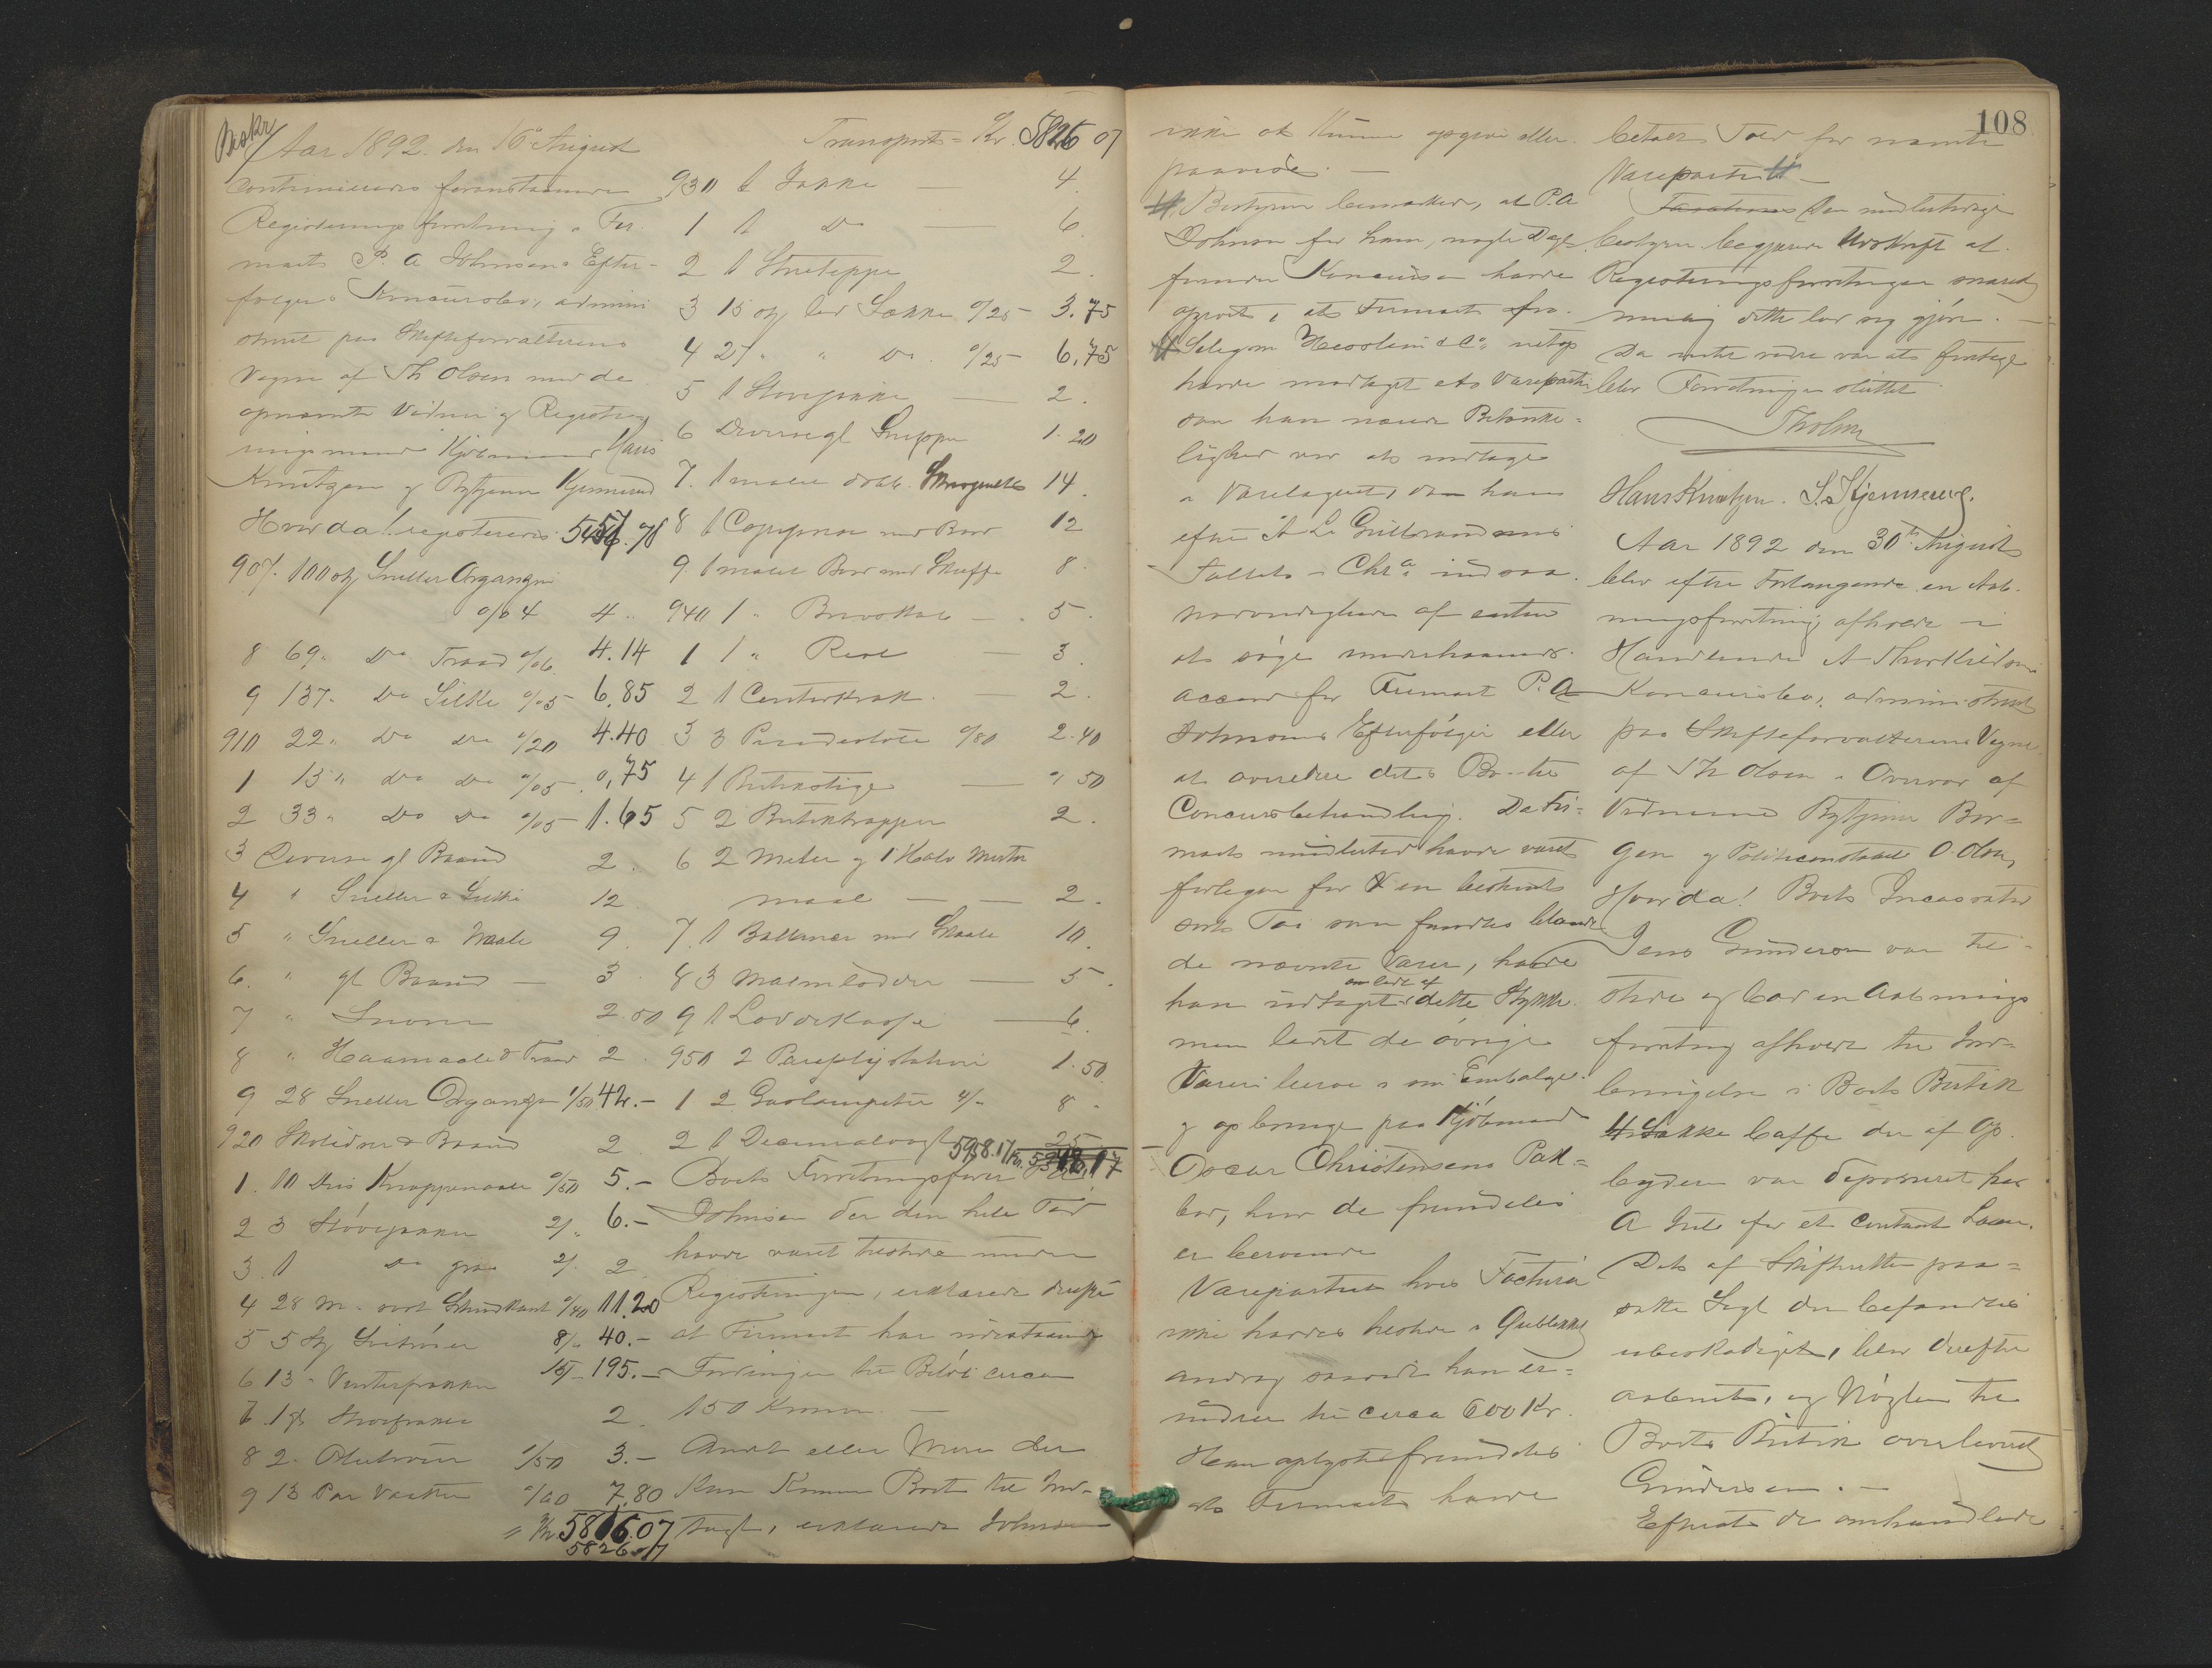 Beskr
Aar 1892 den 16de August
continueredes foranstaaende
Registreringsforretning i Fir-
maet P. A Johnsens Efter-
følgers Konkursbo, admini
streret paa Skifteforvalterens
Vegne af Th Olsen med de
opnævnte Vidner og Registre
ringsmænd Kjøbmand Hans
Knutzen og Bytjener Kjennerud
Hvorda! registreredes 5457.78
907. 100 stk Sneller Organzin
0/04 4 "
8 69 " Do Traad 0/06 4.14
9 137 " Do Silke 0/05 6.85
910 22 " Do Do 0/20 4.40
1 15 " Do Do 0/05 0,75
2 33 " Do Do 0/05 1.65
3 Diverse gl Baand 2.
4 " Sneller & Silke 12
5 " Sneller & Naale 9.
6. " gl Baand — 3
7 " Snorer 2.50
8 " Haarnaale & Traad 2
9 28 Sneller Organzin 1/50 42.-
920 Skolidser & Baand 2
1. 10 Dus Knappenaale 0/50 5.-
2 3 Støvejakker 2/. 6.-
3. 1 Do graa 2/. 2
4 28 M. sort 0/40 11,20
5 5 St 8/. 40.-
6 13 " Vinterfrakker 15/- 195.-
7 1 gl. 2.
8 2. 1/50 3.-
9 13 Par Vanter 0/60 7.80
= Kr 5816.07
5826.07
Transport = Kr. 5826 07
930 1 Jakke — 4.
1 1 Do — 6.
2 1 2.
3 15 stk Sække 0/25 - 3.75
4 27 " " Do. 0/25 - 6,75
5 1 — 2.
6 Diverse gl 1.20
7. 1 malet dobb. 14.
8 1 Copipresse med Bord 12
9. 1 malet Bord med Skuffe 8.
940 1 " — 5.
1 1 " Reol — 3.
2 1 Contorkrak — 2.
3 3 0/80 2.40
4 1 Butikstige — " 50
5 2 Butiktrapper 2.
6 2 Meter og 1 Halv Meter
maal — — 2.
7. 1 Ballance med Skaale 10.
8 3 Malmlodder — 5.
9 1 — 6.
950 2 1.50
1 2 Gaslampetter 4/- 8 "
2 1 Decimalvægt 25
5958.17 Kr. 5948,17
Boets Forretningsfører P. A.
Johnsen der den hele Tid
havde været tilstede under
Registreringen, erklærede derpaa
at Firmaet har udestaaende
Fordringer til Beløb circa
150 Kroner. —
Andet eller Mere der
kan komme Boet til Ind-
tægt, erklærede Johnsen
108
ikke at kunne opgive eller
paavise. —
# Bestyren bemærkede, at P.A
Johnsen for ham, nogle Dage
forinden Konkursen havde
oplyst, at Firmaet fra
# Selgren & Co. netop
havde modtaget et Vareparti
som han nærede Betænke-
lighed ved at indtage
i Varelageret, da han
efter A L Guldbrandsens
Fallit i Chra. indsaa
Nødvendigheden af enten
at søge underhaanden
accord for Firmaet P. A
Johnsens Efterfølger eller
at overdrage dets Bo til
Concursbehandling. Da Fir-
maet imidlertid havde været
forlegen for en bestemt
sort Tøi som fandtes blandt
de nævnte Varer, havde
han udtaget en Del af dette Stykke
men ladt de øvrige
Varer beroe i sin Emballage
og opbringe paa Kjøbmand
Oscar Christensens Pak-
bod, hvor de fremdeles
er beroende
Varepartiet hvis Factura
ikke havdes tilstede i Øieblikket
androg saavidt han er-
indrer til circa 600 Kr.
Han oplyste fremdeles
at Firmaet havde
betalt Told for nævnte
Vareparti # —
Den midlertidige
bestyrer begjærede Udskrift af
Registreringsforretningen snarest
mulig dette lar sig gjøre. —
Da intet videre var at foretage
blev Forretningen sluttet.
ThOlsen
Hans Knutzen. S. Kjennerud.
Aar 1892 den 30te August
blev efter Forlangende en Aab-
ningsforretning afholdt i
Handlende A Thorkildsens
Konkursbo, administreret
paa Skifteforvalterens Vegne
af Th Olsen i Overvær af
Vidnerne Bytjener Bor-
gen og Politiconstabel O Olsen,
Hvorda! Boets Incassator
Jens Gundersen var til-
stede og bad en Aabnings
forretning afholdt til Ind-
bringelse i Boets Butik
4 Sække Caffe der af Op
byderen var deponeret hos
A for et contant Laan.
Det af Skifteretten paa-
satte Segl der befandtes
ubeskadiget, blev derefter
aabnet, og Nøglen til
Boets Butik overleveret
Gundersen. —
Efterat de omhandlede